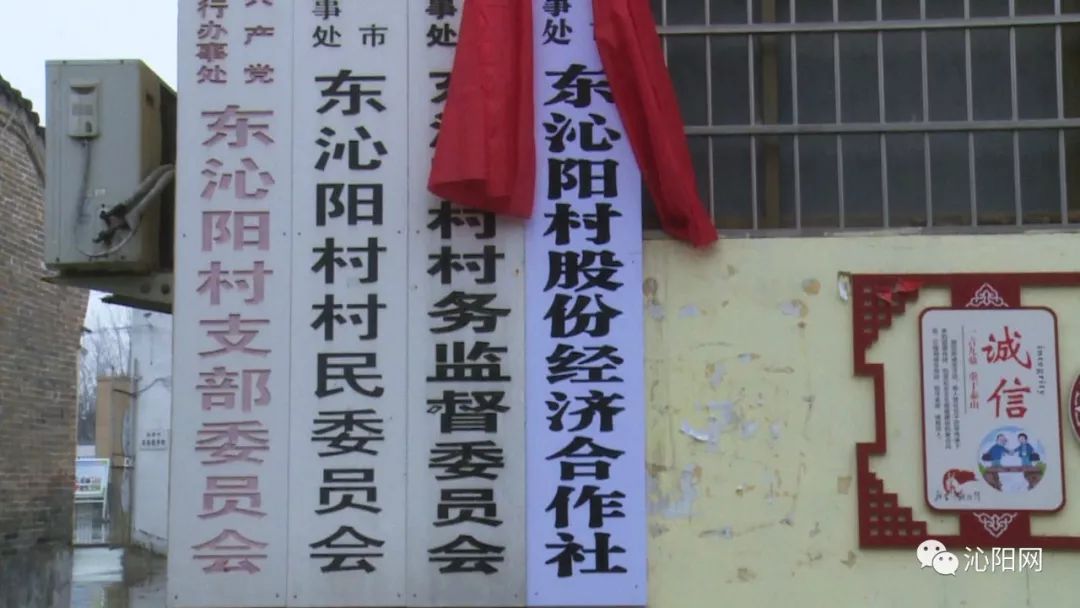 产党
行办事处
东沁阳村支部委员会
市
事处
东沁阳村村民委员会
事处
村村务监督委员会
事处
东沁阳村股份经济合作社
诚信
integrity
一言九鼎 重于泰山
沁阳网